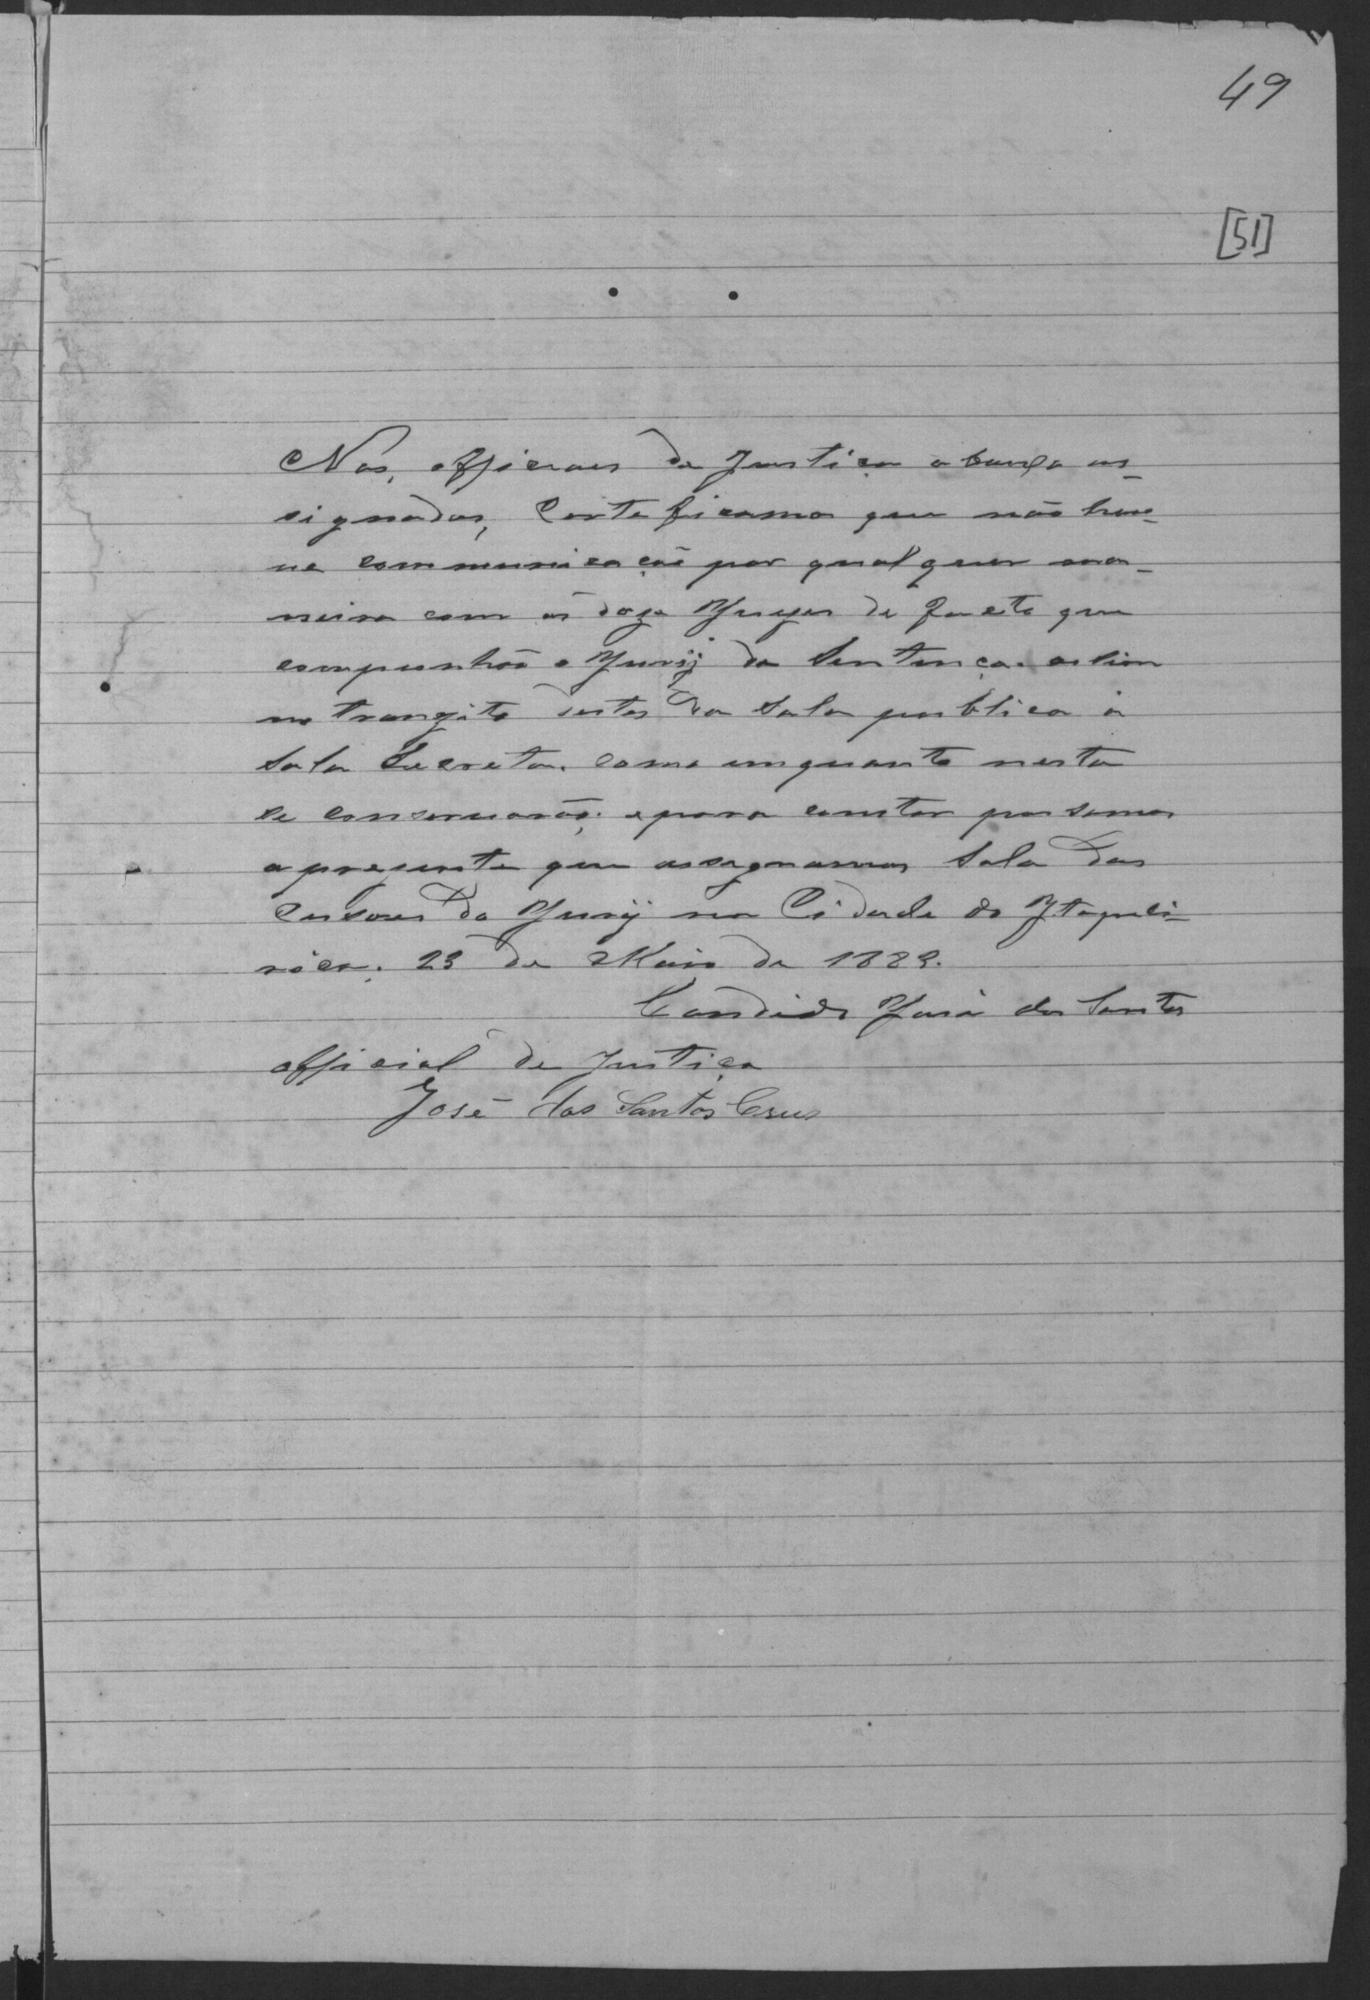 49
[51]
Nos, officiaes de Justiça abaixo as-
signados, Certeficamos que não hou-
ve communicação por qualquer ma-
neira com os doze Juizes de facto que
compunhão o Jury da Sentença. assim
no tranzito destes da Sala publica á
Sala Secreta. como enquanto nesta
se conservarão; e para constar passamos
a prezente que assignamos Sala das
Cessoes do Jury na Cidade de Itapeci-
rica. 23 de Maio de 1889.
Candido José dos Santos
official de Justiça
José dos Santos Crus